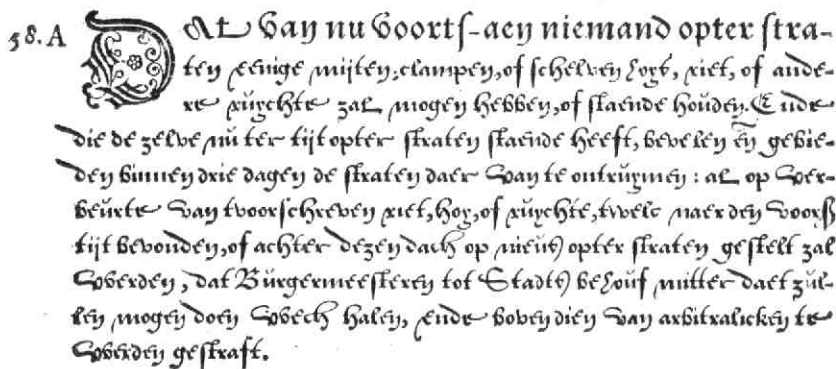 58. A DAt van nu voorts-aen niemand opter stra-
ten eenige mijten, clampen, of schelven hoys, riet, of ande-
re ruychte zal mogen hebben, of staende houden. Ende
die de zelve nu ter tijt opter straten staende heeft, bevelen eñ gebie-
den binnen drie dagen de straten daer van te ontruymen: al op ver-
beurte van tvoorschreven riet, hoy, of ruychte, twelc naer den voorsz
tijt bevonden, of achter dezen dach op nieus opter straten gestelt zal
werden, dat Burgermeesteren tot Stadts behouf mitter daet zul-
len mogen doen wech halen, ende boven dien van arbitralicken te
werden gestraft.